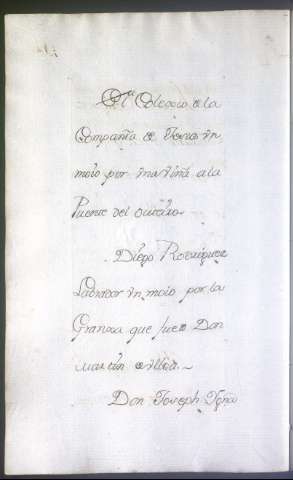 El Colegio de la
Compañia de Jesus Un
moio por Una Viña a la
Puente del
Diego Rodriguez
Labrador Un moio por la
Granoxa que fue de Don
Martin de
Don Joseph